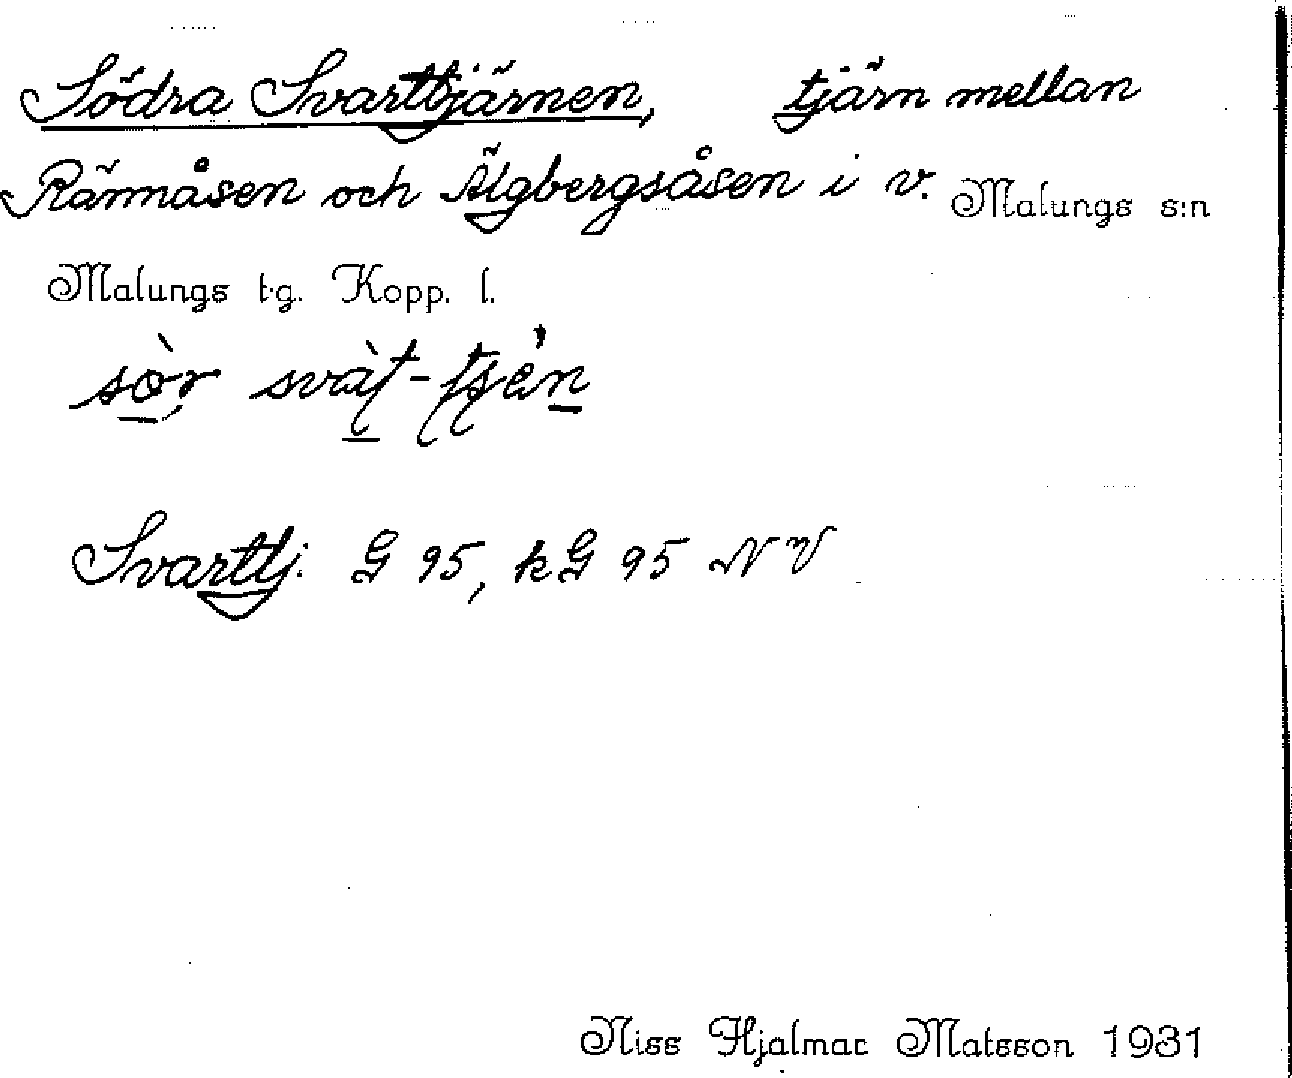 Södra Svarttjärnen, tjärn mellan
Rännåsen och Älgbergsåsen i v. Malungs s:n
Malungs t.g. Kopp. l.
sòr svàt-tsjén
Svarttj. G 95, kG 95 NV
Niss Hjalmar Matsson 1931